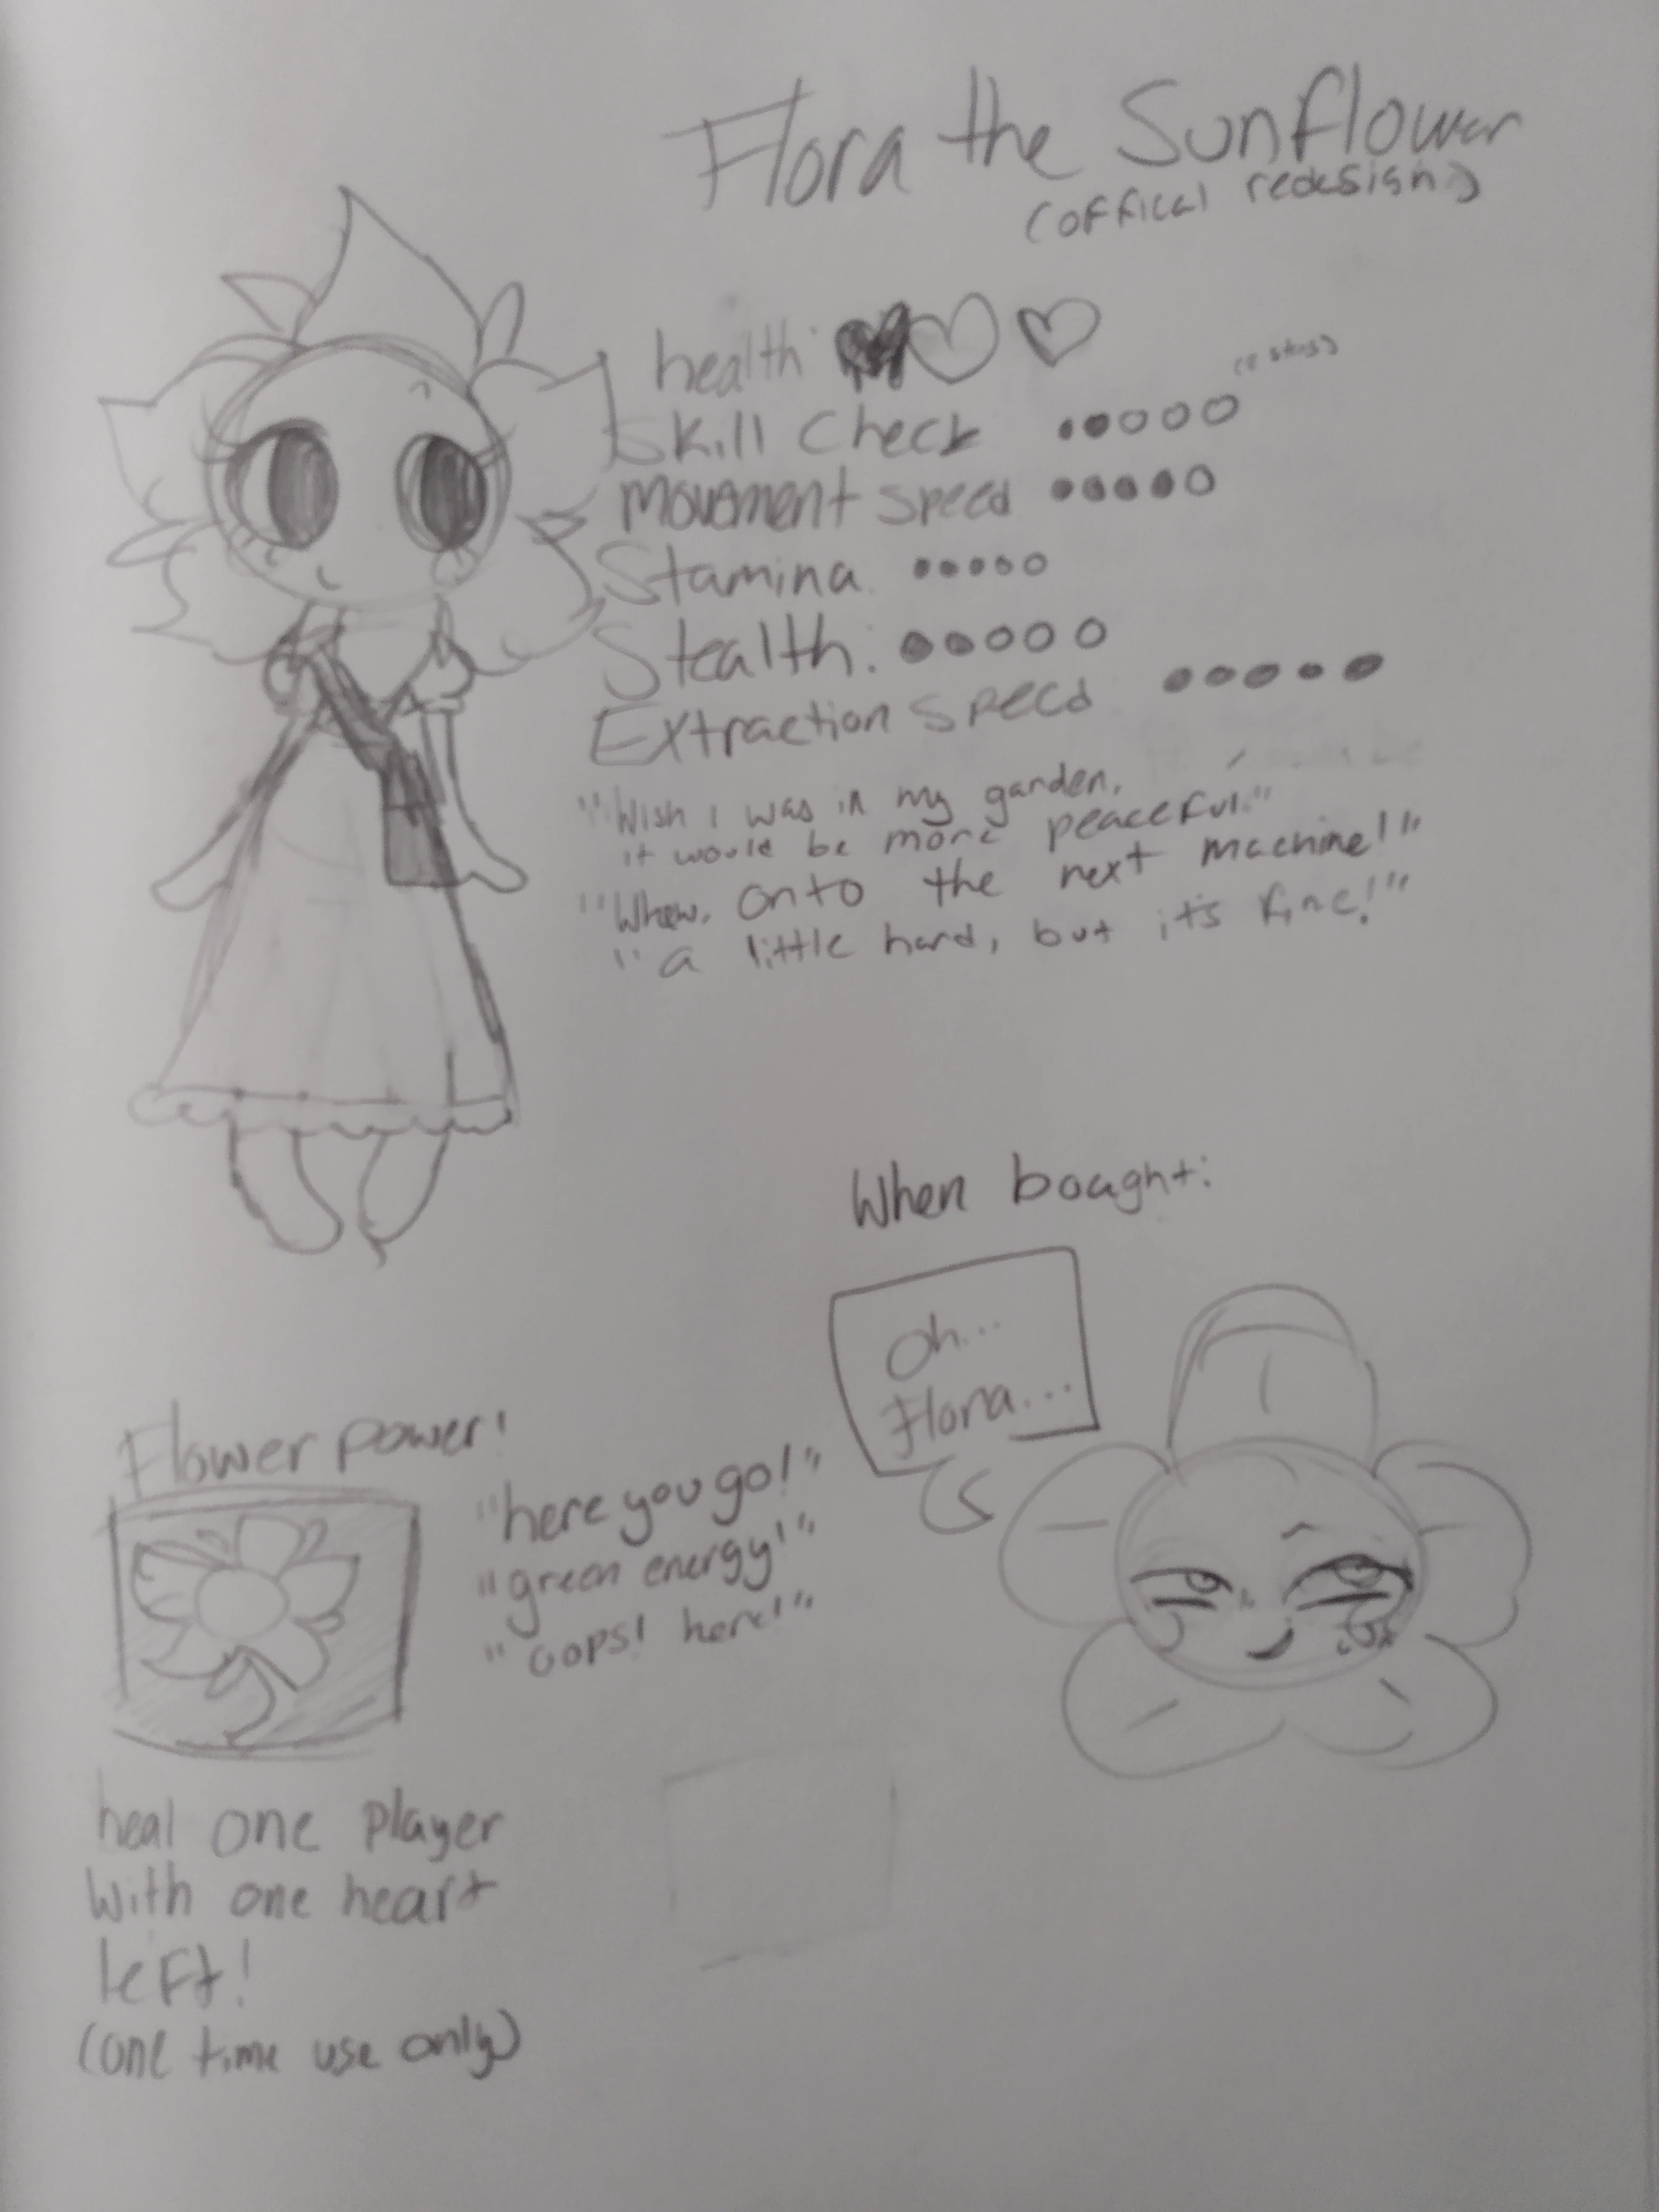 Flora the Sunflower
(offical redesign)
health:
Skill Check
Movement speed
Stamina
Stealth:
Extraction speed
"Wish I was in my garden,
it would be more peaceful."
"Whew, onto the next machine!"
"a little hard, but it's fine!"
When bought:
Oh...
Flora...
Flower power!
"here you go!"
"green energy!"
"oops! here!"
heal one player
with one heart
left!
(one time use only)